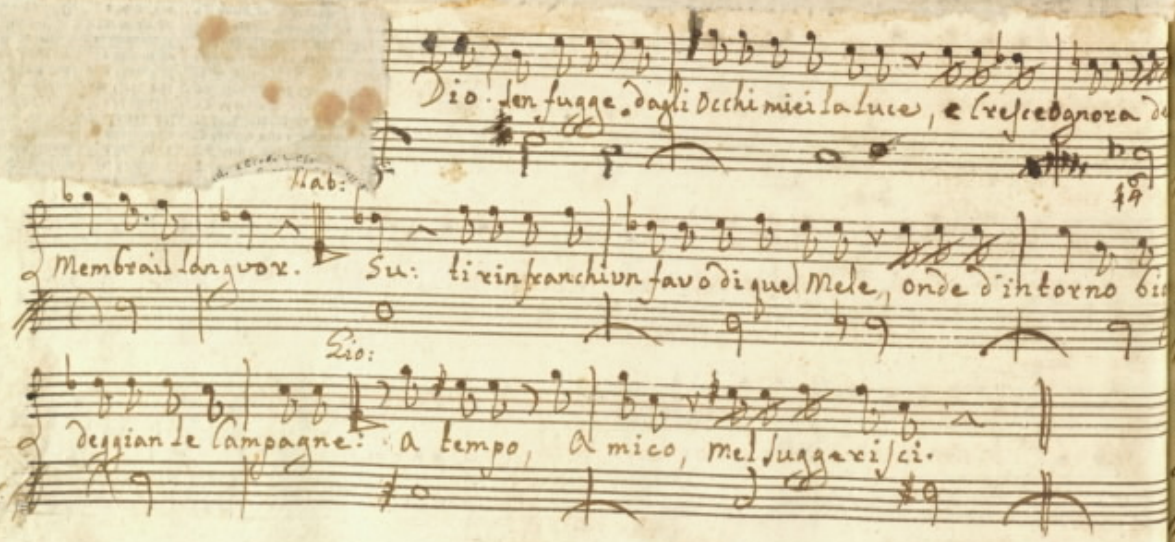 Dio! sen fugge dagli occhi miei la luce, e cresce ognora de
Nab:
Membra il languor. Su: ti rinfranchi un favo di quel Mele, onde d'intorno bio
Gio:
deggian le Campagne: A tempo, Amico, mel suggerisci.